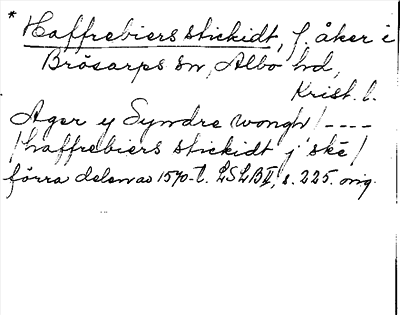 * Haffrebiers stickidt, f. åker i
Brösarps sn, Albo hd,
Krist. l.
Ager y Syndre wongh / ----
/ haffrebiers stickidt j skë /
förra delen av 1570-t. LSLBII, s. 225. orig.